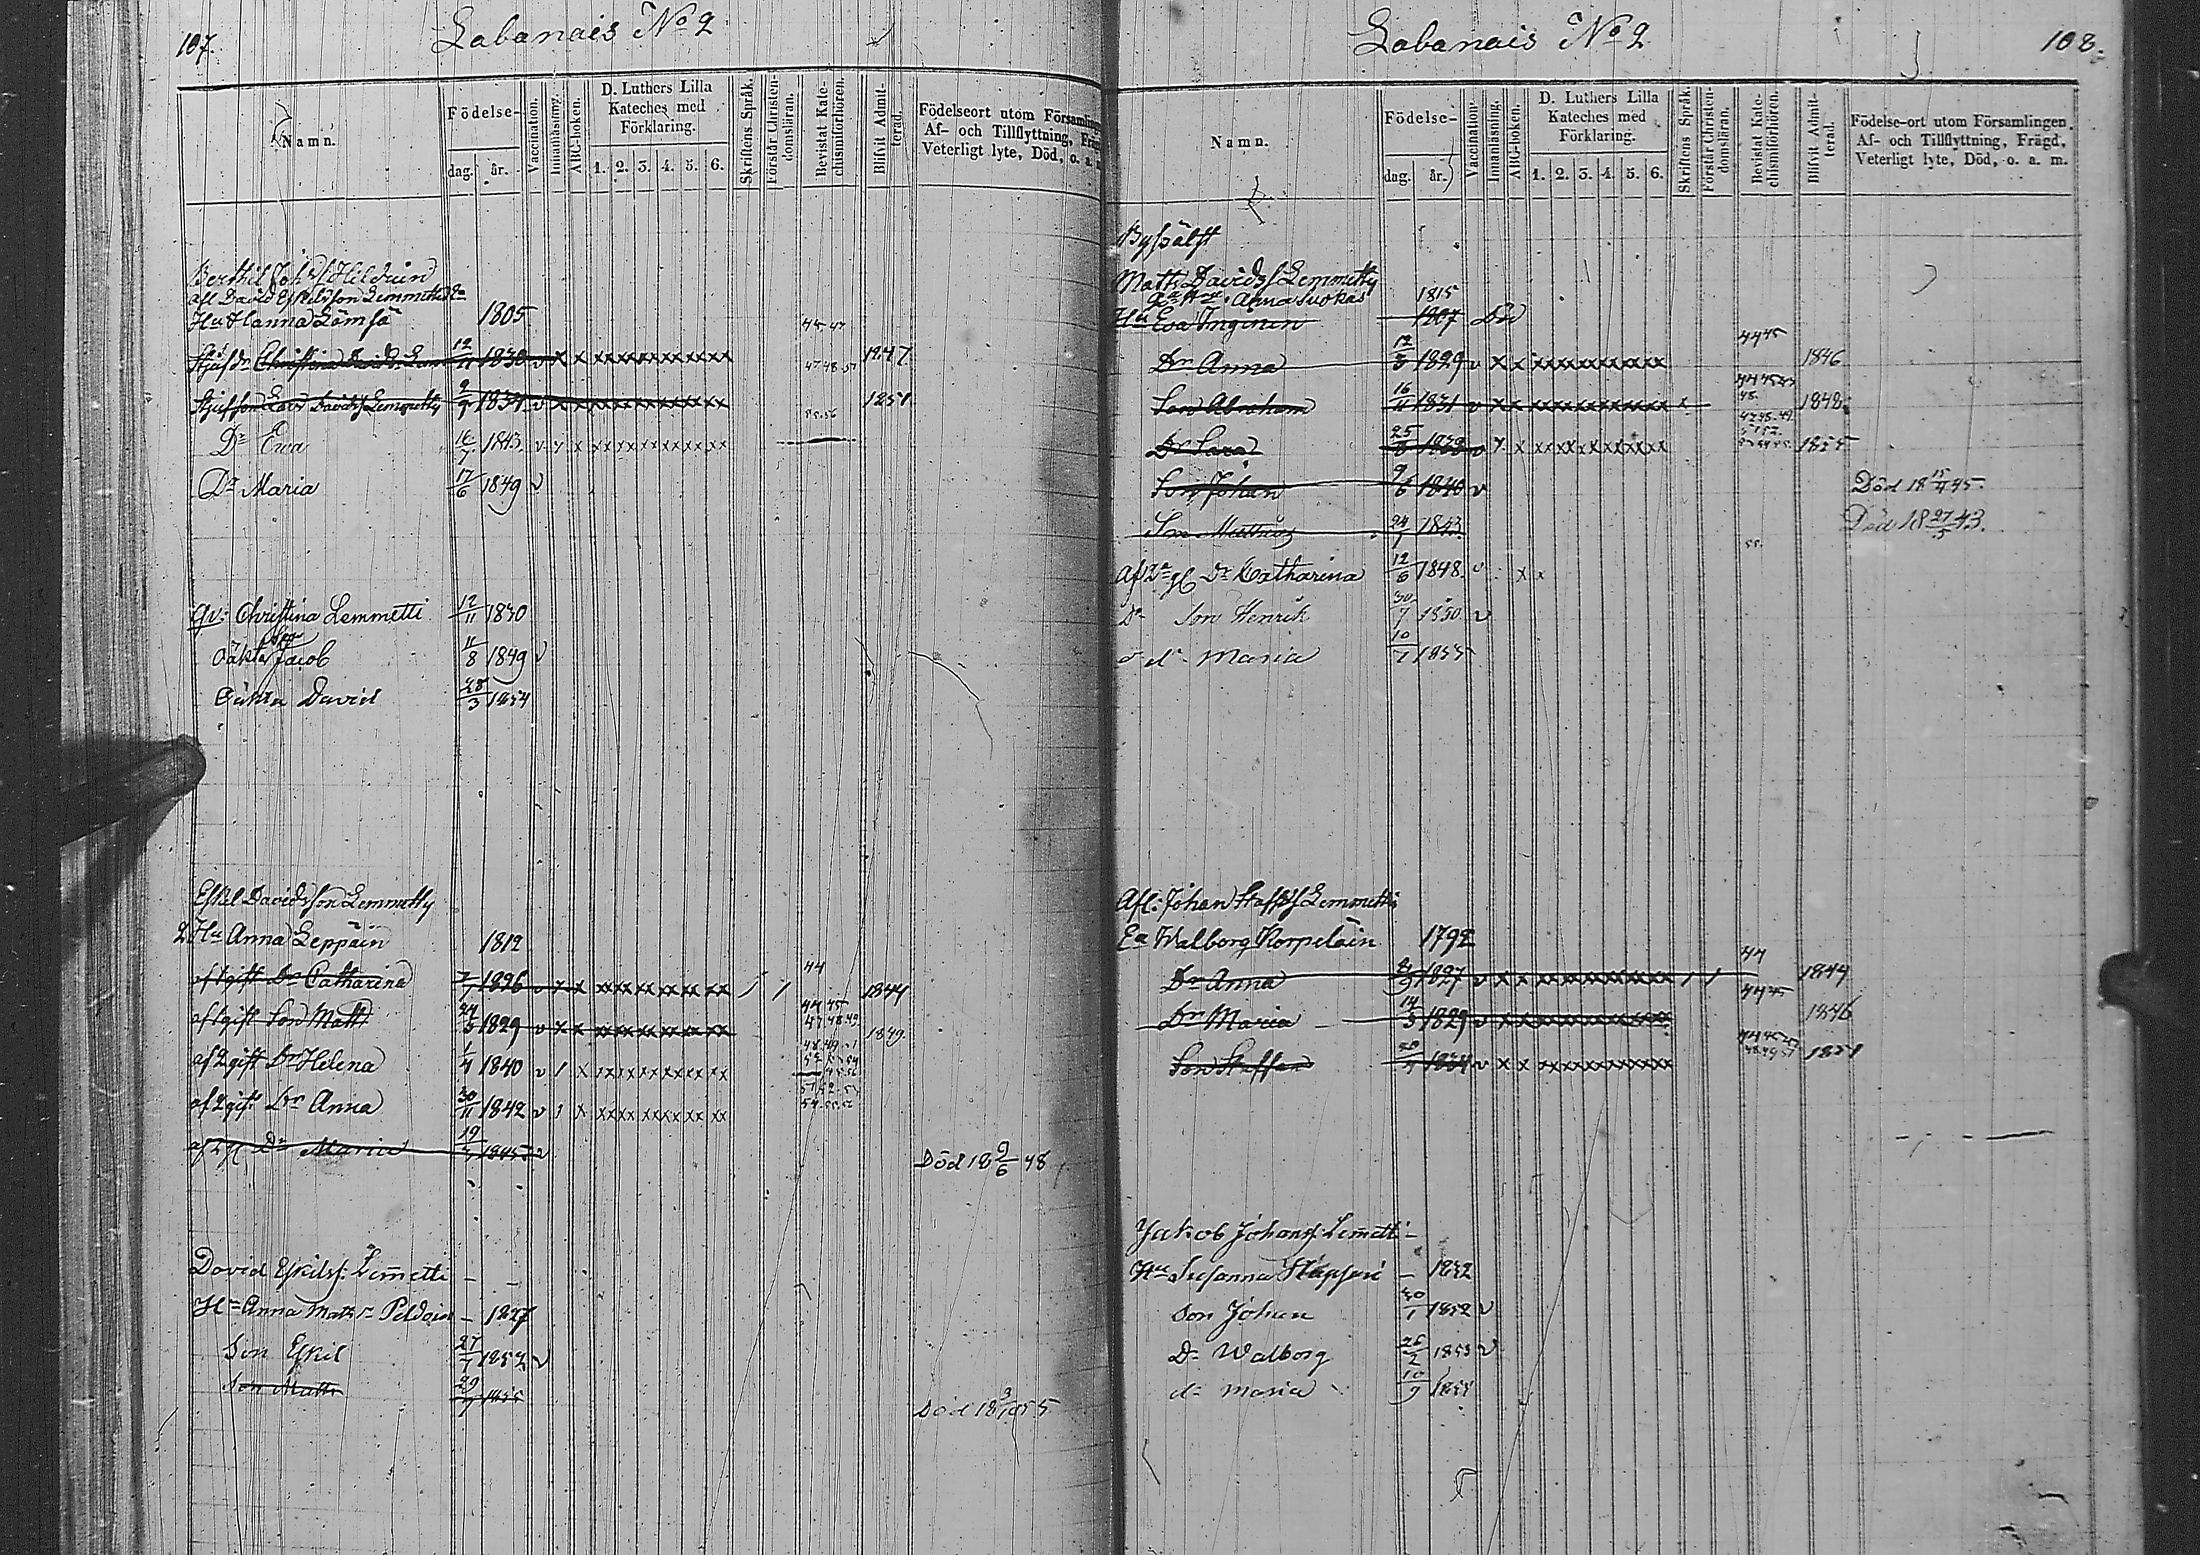 107.
Labanais No 2
Namn.
Födelse-
dag.
år.
Vaccination.
Innanläsning.
ABC-boken.
D. Luthers Lilla
Kateches med
Förklaring.
1. 2. 3. 4. 5. 6.
Skriftens Språk.
Förstår Christen-
domsläran.
Bevistat Kate-
chismiförhören.
Blifvit Admit-
terad.
Födelseort utom Församlingen
Af- och Tillflyttning, Frägd,
Veterligt lyte, Död, o. a. m.
Berthil
afl David Eskelsson Lemmetti
Hu Hanna Lämsä 1805 45 47
Styfdr Christina Davidsdr 12/11 1830 v x x xxxxxxxxxxxx 1847
47 48 51
Styfson Lars Davidss Lemmetty 1834 v x x xxxxxxxxxxxx 1851
55.56
Dr Ewa 16/7 1843 v x xxxxxxxxxxxx
Dr Maria 17/6 1849 v
Qv: Christina Lemmetti 12/11 1830
Oäkta Son Jacob 11/8 1849 v
Oäkta David 28/3 1854
Eskel Davidsson Lemmetty
2 Hu Anna Leppäin 1812
af 1 gift Dr Catharina 1826 v x x xxxxxxxxxxxx / / 44 1844
af 1 gift Son Matts 24/5 1829 v x x xxxxxxxxxxxx 44 45 47 48 49 1849.
af 2 gift Dr Helena 1/4 1840 v / x xxxxxxxxxxxx
af 2 gift Dr Anna 30/11 1842 v x xxxxxxxxxxxx
54.55.56
af 2 g Dr Maria 1845 v
Död 18 9/6 48
David Eskilss: Lemetti
Hu Anna Matsdr 1827
Son Eskil 27/7 1852 v
Son Matts 1855
Död 18 55
Labanais No 2
108.
Namn.
Födelse-
dag.
år.
Vaccination.
Innanläsning.
ABC-boken.
D. Luthers Lilla
Kateches med
Förklaring.
1. 2. 3. 4. 5. 6.
Skriftens Språk.
Förstår Christen-
domsläran.
Bevistat Kate-
chismiförhören.
Blifvit Admit-
terad.
Födelse-ort utom Församlingen.
Af- och Tillflyttning, Frägd,
Veterligt lyte, Död, o. a. m.
Matts Davidss Lemmetty
2a Hu Anna Suokas 1815
Hu Eva Inginen 1807 Död
Dr Anna 12/3 1829 v x x xxxxxxxxxxxx 44 45 1846
Son Abraham 16/11 1831 v x x xxxxxxxxxxxx x 1848
Dr Sara 1838 v x x xxxxxxxxxxxx 1855
Son Johan 9/6 1840 v
Död 18 15/4 45.
Son Matthias 24/1 1843
Död 18 27/5 43.
55.
Af 2a g Dr Catharina 12/6 1848 v x x
Dr Son Henrik 30/7 1850 v
dr Maria 10/1 1855
Afl: Johan Staffss Lemmetti
Ea Walborg Korpeläin 1792
Dr Anna 1827 v x x xxxxxxxxxxxx / / 44 1844
Dr Maria 14/3 1829 v x x xxxxxxxxxxxx 44 45 1846
Son Staffan 1834 v x x xxxxxxxxxxxx 1851
Jakob Johanss Lemetti
Hu Susanna 1832
Son Johan 30/1 1852 v
Dr Walborg 26/2 1853 v
dr Maria 10/9 1854